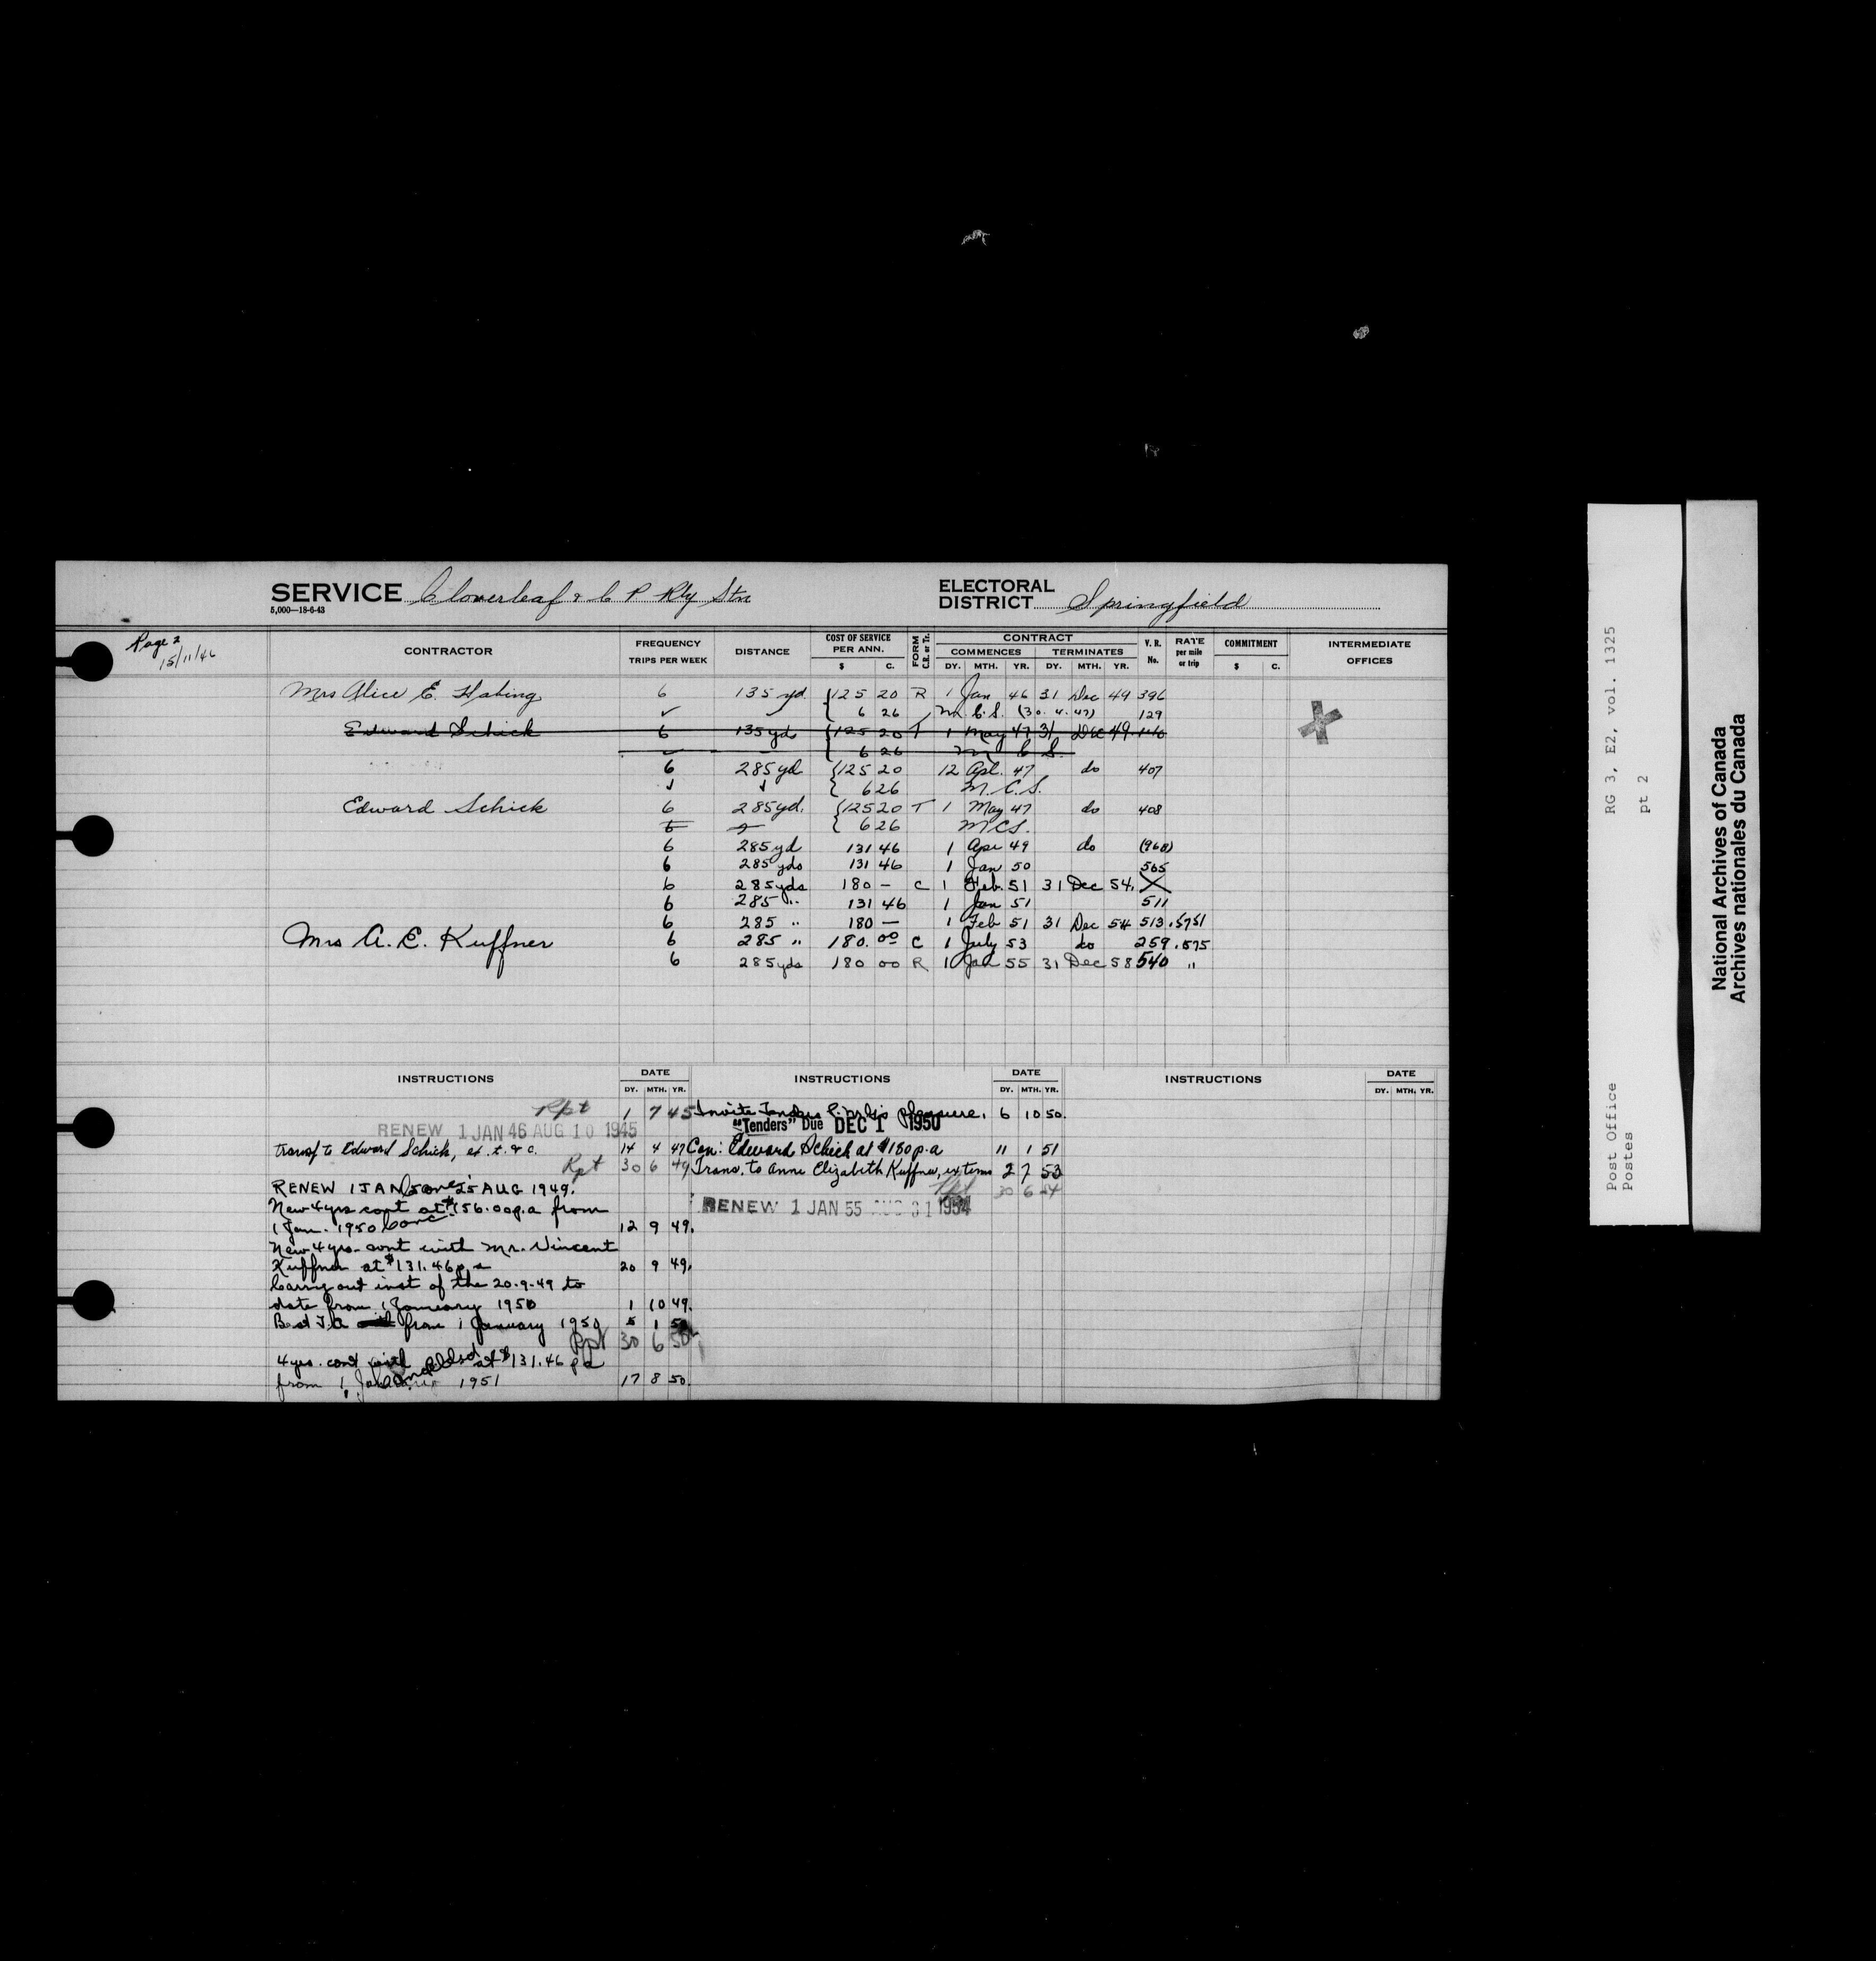 SERVICE Cloverleaf & C P Rly Stn
5,000—18-6-43
ELECTORAL DISTRICT Springfield
Page 2
15/11/46
CONTRACTOR FREQUENCY TRIPS PER WEEK DISTANCE COST OF SERVICE PER ANN. $ C. FORM C.R. or Tr. CONTRACT COMMENCES DY. MTH. YR. TERMINATES DY. MTH. YR. V. R. No. RATE per mile or trip COMMITMENT $ C. INTERMEDIATE OFFICES
Mrs Alice E. Habing 6 135 yd. 125 20 R 1 Jan 46 31 Dec 49 396
6 26 M.C.S. (30.4.47) 129
Edward Schick 6 135 yds 125 20 T 1 May 47 31 Dec 49
6 26 M C S.
6 285 yd 125 20 12 Apl. 47 do 407
6 26 M.C.S.
Edward Schick 6 285 yd. 125 20 T 1 May 47 do 408
6 26 MCS.
6 285 yd 131 46 1 Apr 49 do (968)
6 285 yds 131 46 1 Jan 50 505
6 285 yds 180 — C 1 Feb. 51 31 Dec 54. X
6 285 " 131 46 1 Jan 51 511
6 285 " 180 — 1 Feb 51 31 Dec 54 513 .5751
Mrs A. E. Kuffner 6 285 " 180. 00 C 1 July 53 do 259 .575
6 285 yds 180 00 R 1 Jan 55 31 Dec 58 540 "
INSTRUCTIONS DATE DY. MTH. YR. INSTRUCTIONS DATE DY. MTH. YR. INSTRUCTIONS DATE DY. MTH. YR.
Rpt 1 7 45
RENEW 1 JAN 46 AUG 10 1945
transf to Edward Schick, ex. t. & c. 14 4 47
Rpt 30 6 49
RENEW 1 JAN 50 25 AUG 1949.
New 4 yrs cont at $156.00 p.a from
1 Jan. 1950 canc 12 9 49.
New 4 yrs. cont with Mr. Vincent
Kuffner at $131.46 p.a 20 9 49.
Carry out inst of the 20-9-49 to
date from 1 January 1950 1 10 49.
Best T.A from 1 January 1950 5 1 50
Rpt 30 6 50
4 yrs. cont with at $131.46 pa
from 1 Jan 1951 17 8 50.
Cancelled
Invite Tenders P.M.G's pleasure. 6 10 50.
"Tenders" Due DEC 1 1950
Con: Edward Schick at $180 p.a 11 1 51
Trans. to Anne Elizabeth Kuffner, ex terms 2 7 53
Rpt 30 6 54
RENEW 1 JAN 55 AUG 31 1954
RG 3, E2, vol. 1325
pt 2
Post Office
Postes
National Archives of Canada
Archives nationales du Canada